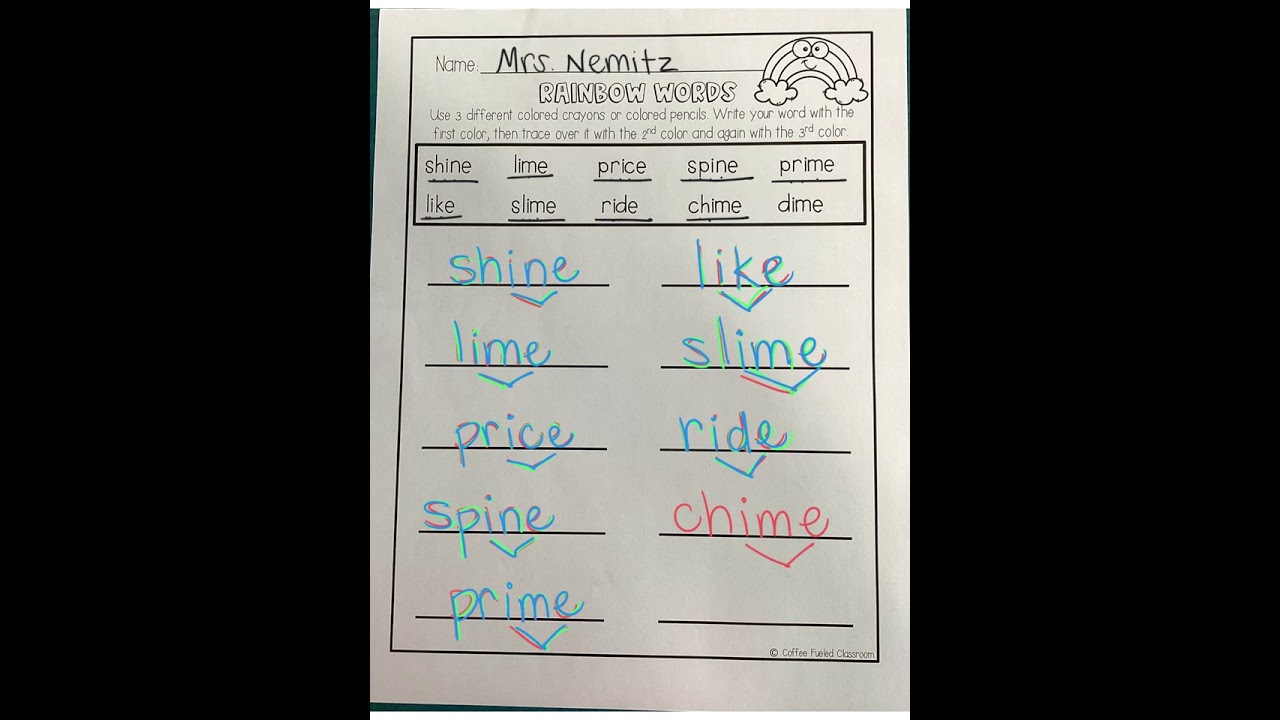 Name: Mrs. Nemitz
RAINBOW WORDS
Use 3 different colored crayons or colored pencils. Write your word with the
first color, then trace over it with the 2nd color and again with the 3rd color.
shine lime price spine prime
like slime ride chime dime
shine like
lime slime
price ride
spine chime
prime
© Coffee Fueled Classroom